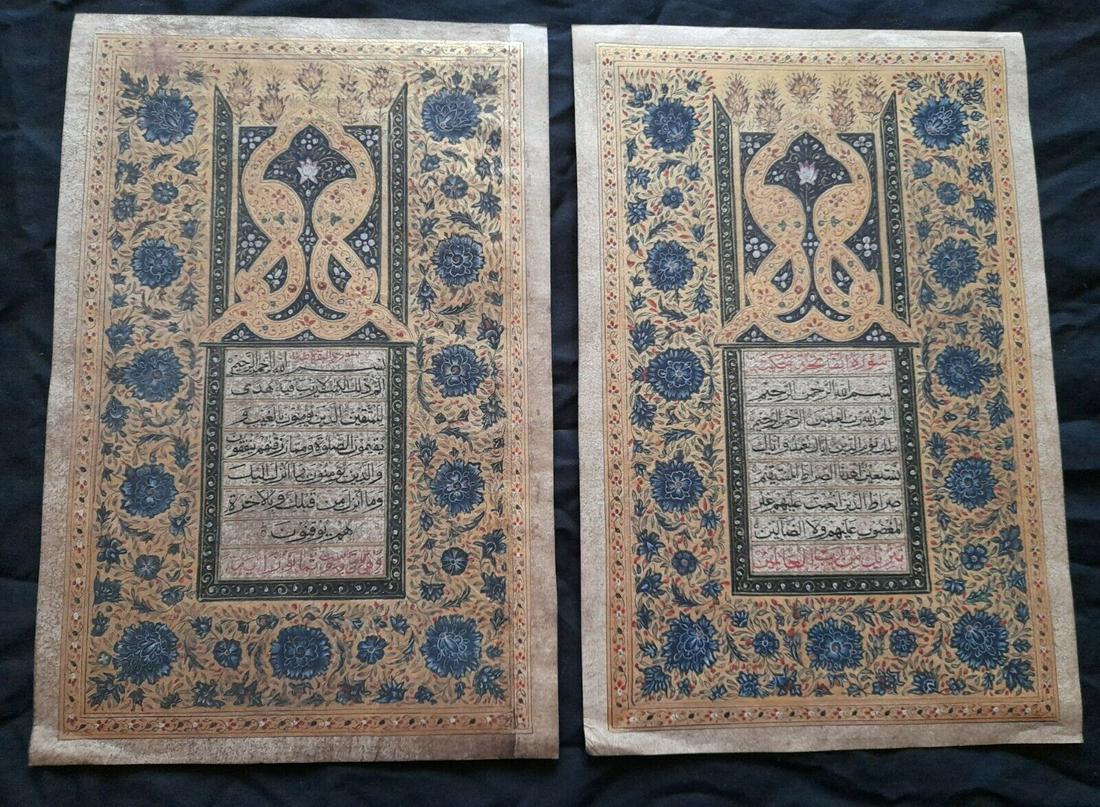 سورة الفاتحة مكية
بسم الله الرحمن الرحيم
الحمد لله رب العلمين الرحمن الرحيم
ملك يوم الدين اياك نعبد واياك
نستعين اهدنا الصراط المستقيم
صراط الذين انعمت عليهم غير
المغضوب عليهم ولا الضالين
تنزيل من رب العالمين
سورة البقرة
بسم الله الرحمن الرحيم
الم ذلك الكتب لا ريب فيه هدى
للمتقين الذين يؤمنون بالغيب و
يقيمون الصلوة ومما رزقنهم ينفقون
والذين يؤمنون بما انزل اليك
وما انزل من قبلك وبالاخرة
هم يوقنون